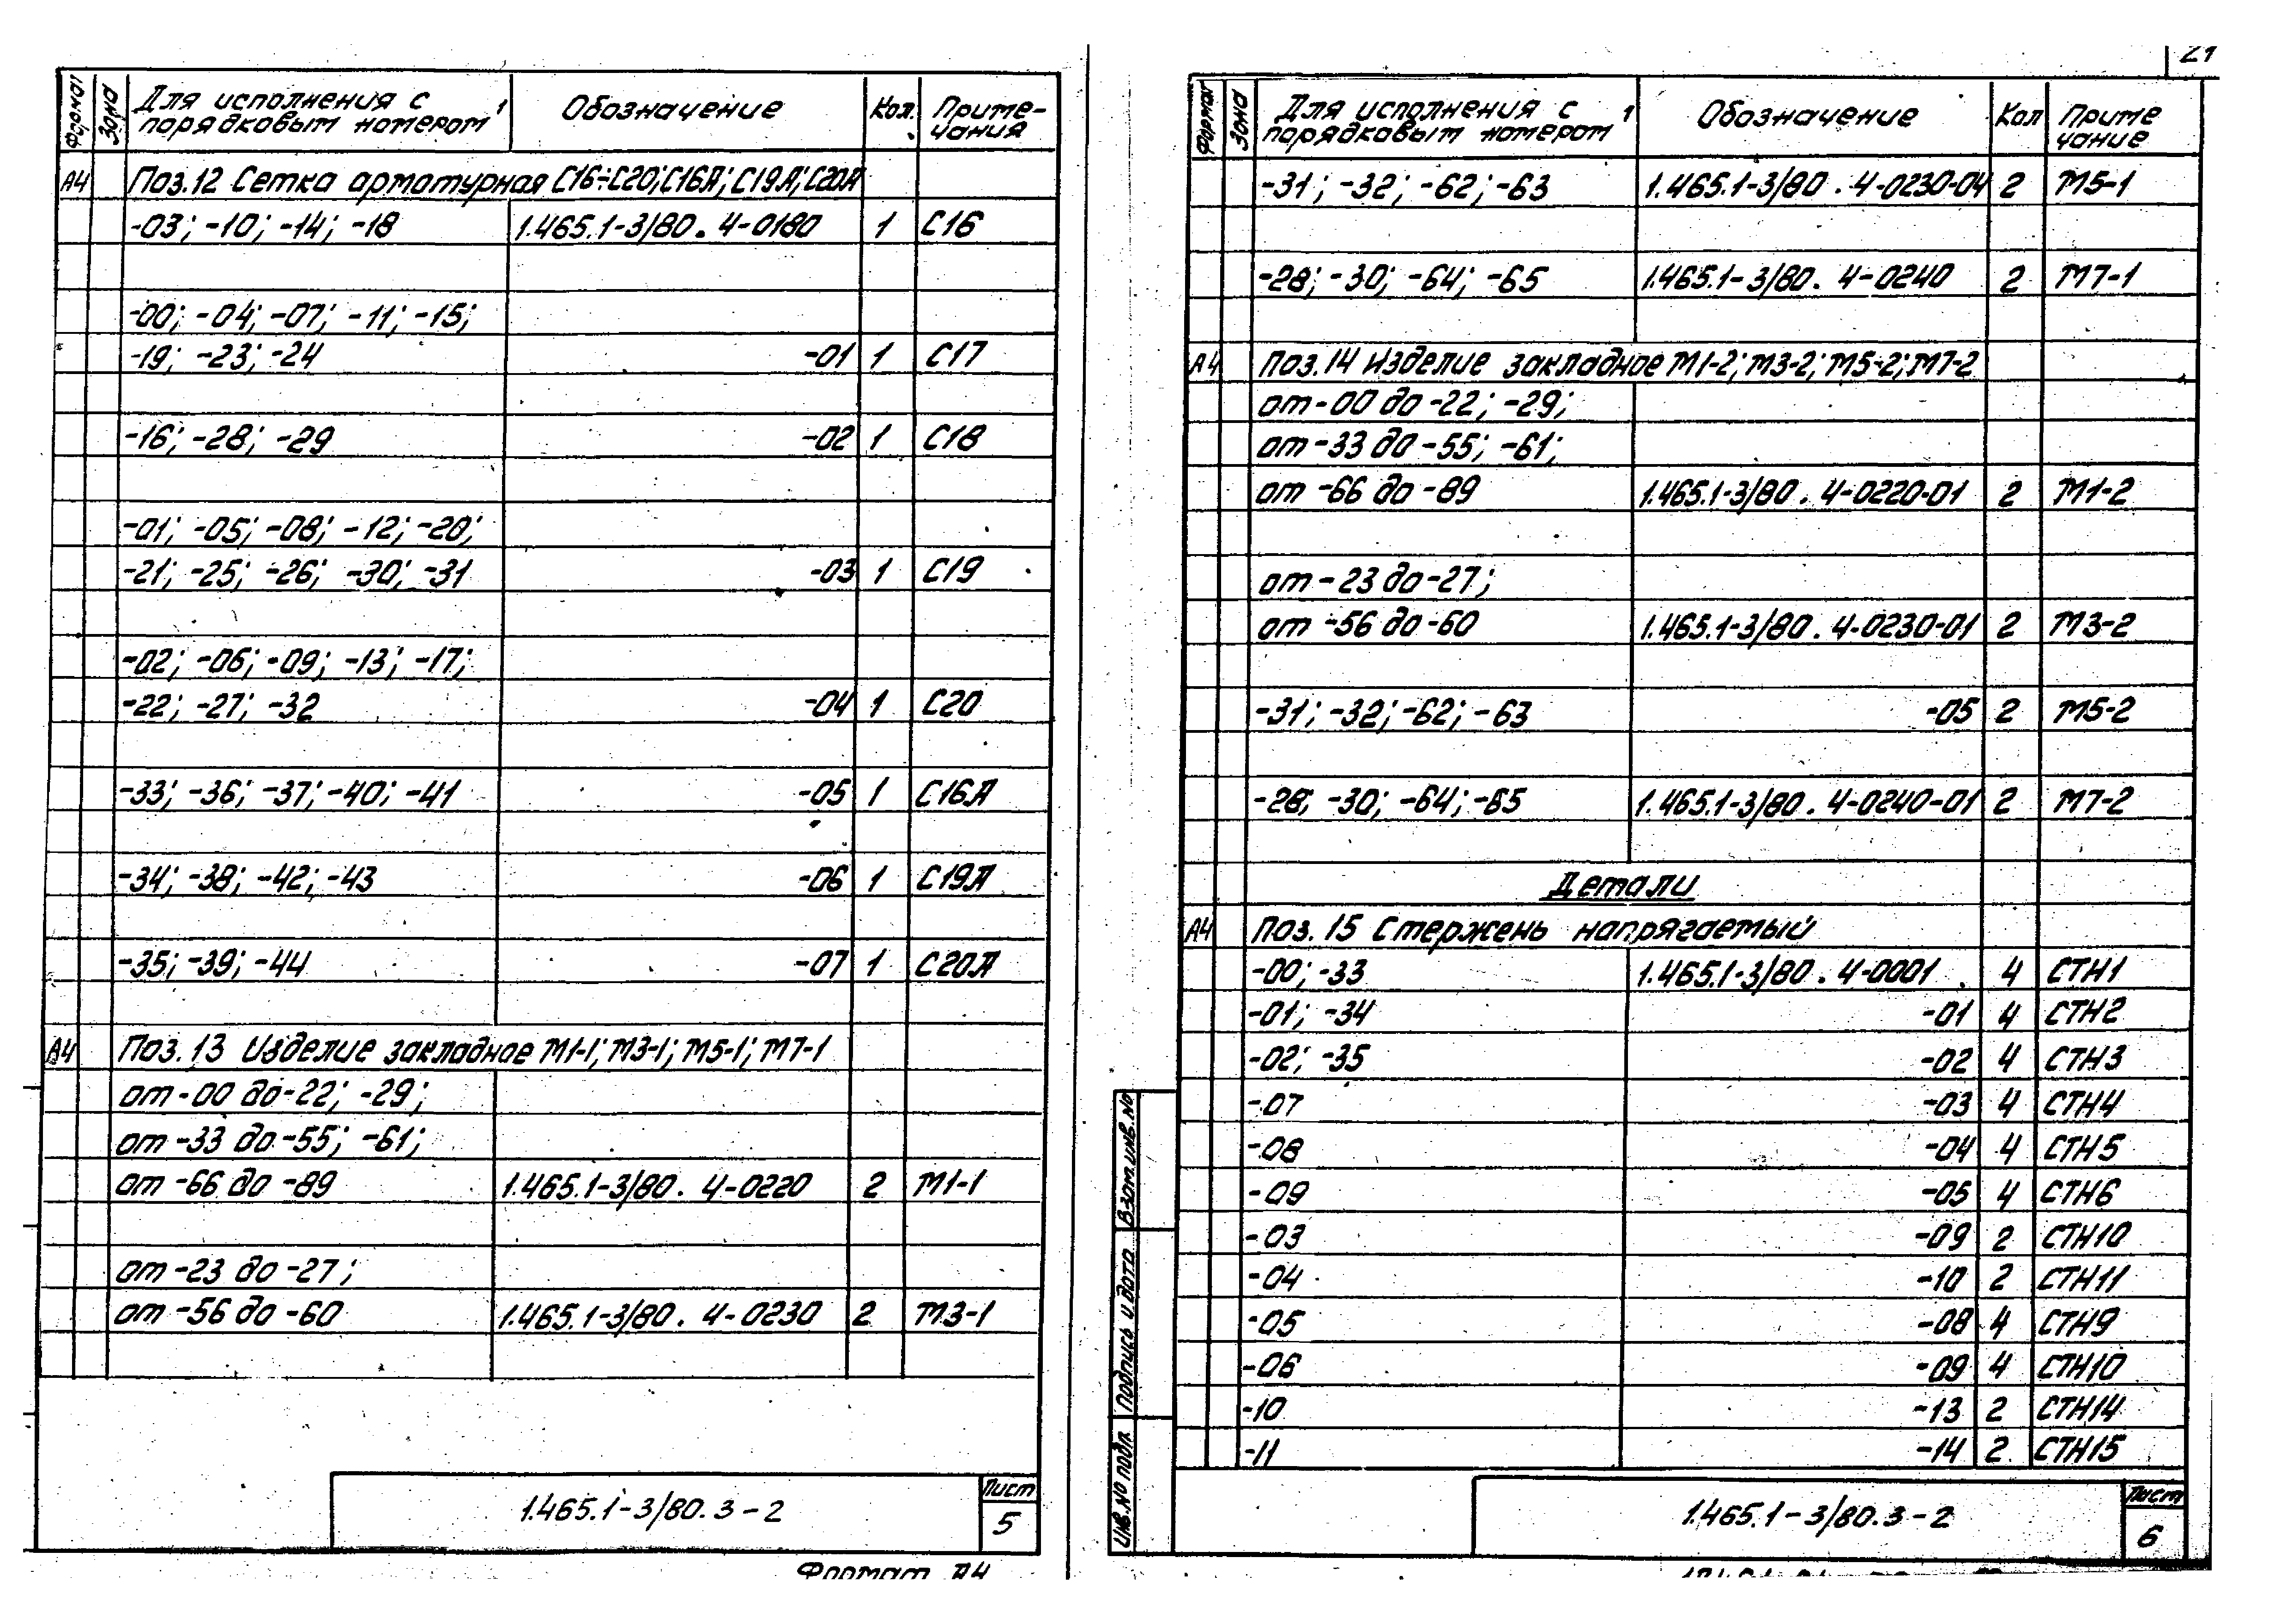 Формат
Зона
Для исполнения с порядковым номером 1
Обозначение
Кол.
Приме-чания
А4 Поз.12 Сетка арматурная С16÷С20;С16А;С19А;С20А
-03; -10; -14; -18 1.465.1-3/80. 4-0180 1 С16
-00; -04; -07; -11; -15;
-19; -23; -24 -01 1 С17
-16; -28; -29 -02 1 С18
-01; -05; -08; -12; -20;
-21; -25; -26; -30; -31 -03 1 С19
-02; -06; -09; -13; -17;
-22; -27; -32 -04 1 С20
-33; -36; -37; -40; -41 -05 1 С16А
-34; -38; -42; -43 -06 1 С19А
-35; -39; -44 -07 1 С20А
А4 Поз.13 Изделие закладное М1-1; М3-1; М5-1; М7-1
от -00 до -22; -29;
от -33 до -55; -61;
от -66 до -89 1.465.1-3/80. 4-0220 2 М1-1
от -23 до -27;
от -56 до -60 1.465.1-3/80. 4-0230 2 М3-1
1.465.1-3/80.3-2
Лист
5
Формат А4
21
Формат
Зона
Для исполнения с порядковым номером 1
Обозначение
Кол
Приме чание
-31; -32; -62; -63 1.465.1-3/80. 4-0230-04 2 М5-1
-28; -30; -64; -65 1.465.1-3/80. 4-0240 2 М7-1
А4 Поз.14 Изделие закладное М1-2; М3-2; М5-2; М7-2
от -00 до -22; -29;
от -33 до -55; -61;
от -66 до -89 1.465.1-3/80. 4-0220-01 2 М1-2
от -23 до -27;
от -56 до -60 1.465.1-3/80. 4-0230-01 2 М3-2
-31; -32; -62; -63 -05 2 М5-2
-28; -30; -64; -65 1.465.1-3/80. 4-0240-01 2 М7-2
Детали
А4 Поз.15 Стержень напрягаемый
-00; -33 1.465.1-3/80. 4-0001 4 СТН1
-01; -34 -01 4 СТН2
-02; -35 -02 4 СТН3
-07 -03 4 СТН4
-08 -04 4 СТН5
-09 -05 4 СТН6
-03 -09 2 СТН10
-04 -10 2 СТН11
-05 -08 4 СТН9
-06 -09 4 СТН10
-10 -13 2 СТН14
-11 -14 2 СТН15
Взам.инв.№
Подпись и дата
Инв.№ подл.
1.465.1-3/80.3-2
Лист
6